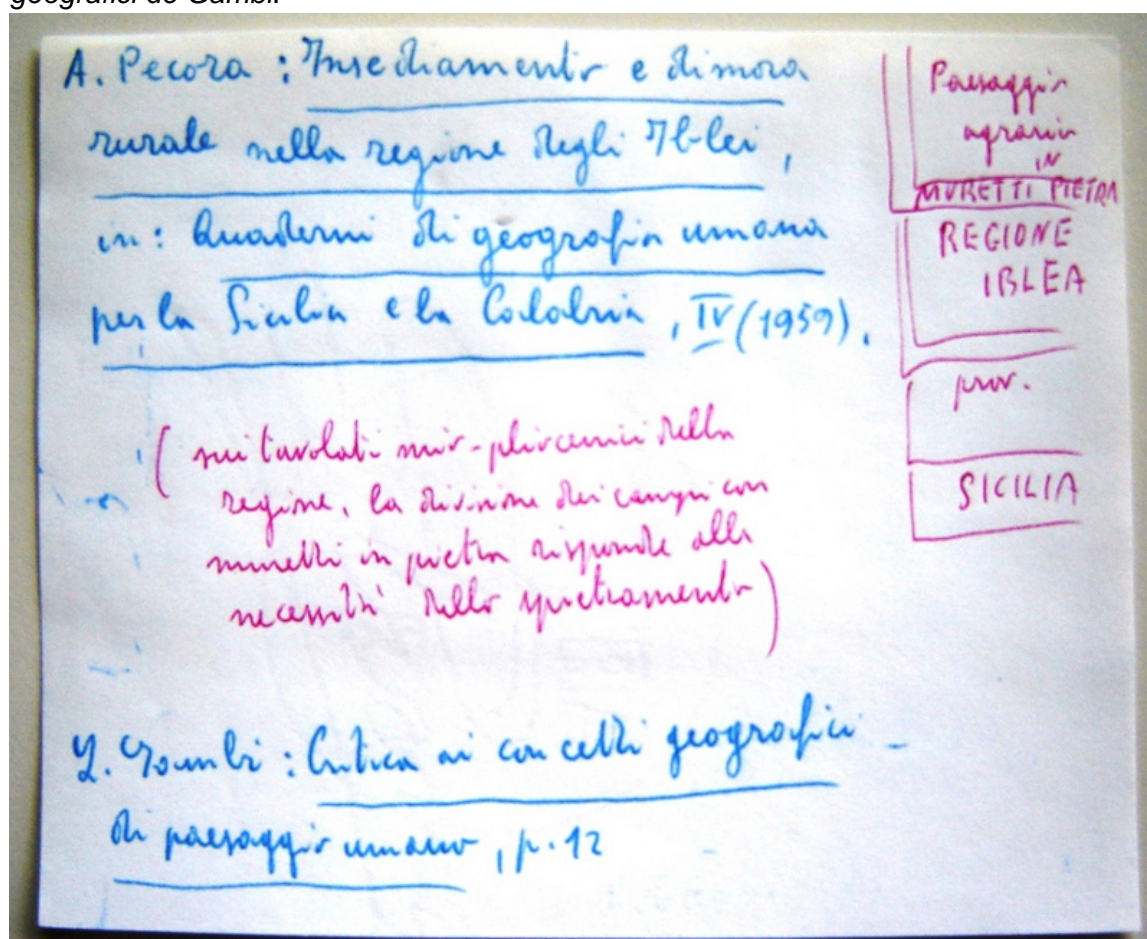 geografici do Gambi.
A. Pecora : Insediamento e dimora
rurale nella regione degli Iblei,
in: Quaderni di geografia umana
per la Sicilia e la Calabria, IV (1959).
( sui tavolati mio-pliocenici della
regione, la divisione dei campi con
muretti in pietra risponde alla
necessità dello spietramento )
L. Gambi : Critica ai concetti geografici
di paesaggio umano, p. 12
Paesaggio
agrario
IN
MURETTI PIETRA
REGIONE
IBLEA
prov.
SICILIA